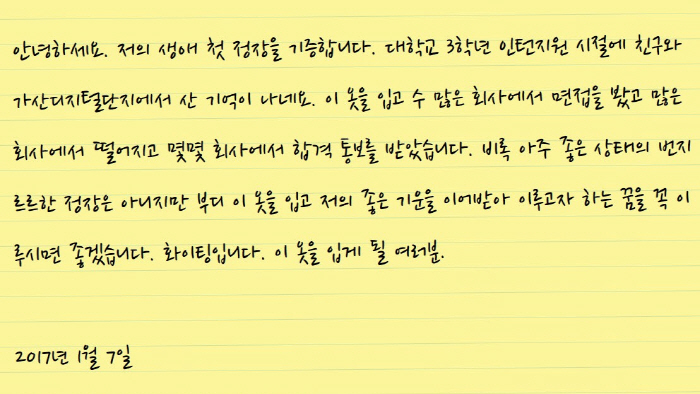 안녕하세요. 저의 생애 첫 정장을 기증합니다. 대학교 3학년 인턴지원 시절에 친구와
가산디지털단지에서 산 기억이 나네요. 이 옷을 입고 수 많은 회사에서 면접을 봤고 많은
회사에서 떨어지고 몇몇 회사에서 합격 통보를 받았습니다. 비록 아주 좋은 상태의 번지
르르한 정장은 아니지만 부디 이 옷을 입고 저의 좋은 기운을 이어받아 이루고자 하는 꿈을 꼭 이
루시면 좋겠습니다. 화이팅입니다. 이 옷을 입게 될 여러분.
2017년 1월 7일